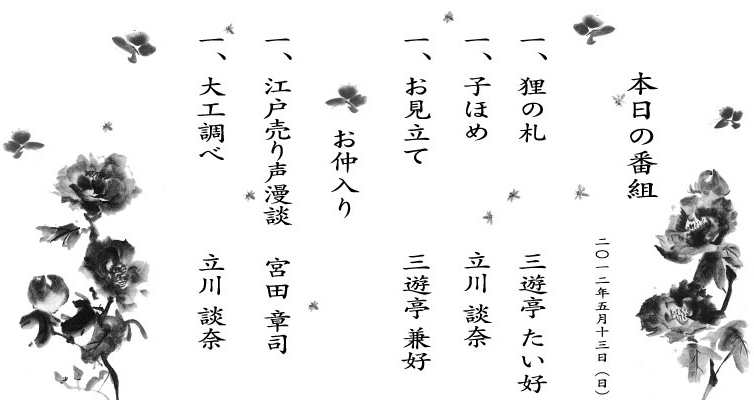 本日の番組
二〇一二年五月十三日（日）
一、狸の札　三遊亭 たい好
一、子ほめ　立川 談奈
一、お見立て　三遊亭 兼好
お仲入り
一、江戸売り声漫談　宮田 章司
一、大工調べ　立川 談奈